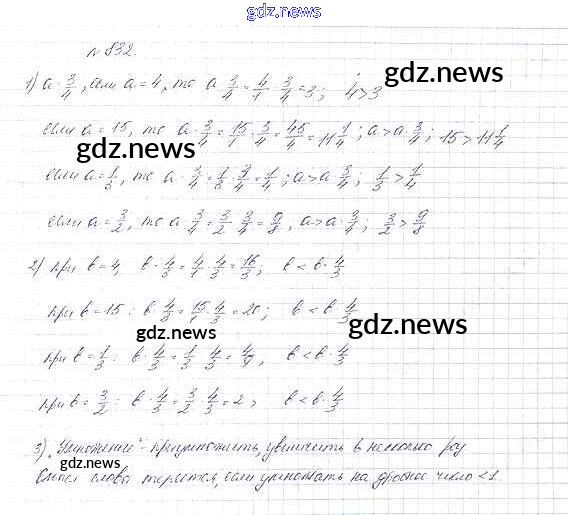 gdz.news
№ 832.
1) a · 3/4, если a = 4, то a 3/4 = 4/1 · 3/4 = 3; 4 > 3
gdz.news
если a = 15, то a · 3/4 = 15/1 · 3/4 = 45/4 = 11 1/4; a > a · 3/4; 15 > 11 1/4
gdz.news
если a = 1/3, то a · 3/4 = 1/8 · 3/4 = 1/4; a > a · 3/4; 1/3 > 1/4
если a = 3/2, то a · 3/4 = 3/2 · 3/4 = 9/8, a > a · 3/4; 3/2 > 9/8
2) при b = 4, b · 4/3 = 4/1 · 4/3 = 16/3, b < b · 4/3
при b = 15 : b · 4/3 = 15/1 · 4/3 = 20; b < b · 4/3
gdz.news
gdz.news
при b = 1/3 : b · 4/3 = 1/3 · 4/3 = 4/9, b < b · 4/3
при b = 3/2 : b · 4/3 = 3/2 · 4/3 = 2, b < b · 4/3
gdz.news
3) "Умножение" - приумножить, увеличить в несколько раз
gdz.news
Смысл слова теряется, если умножать на дробное число < 1.